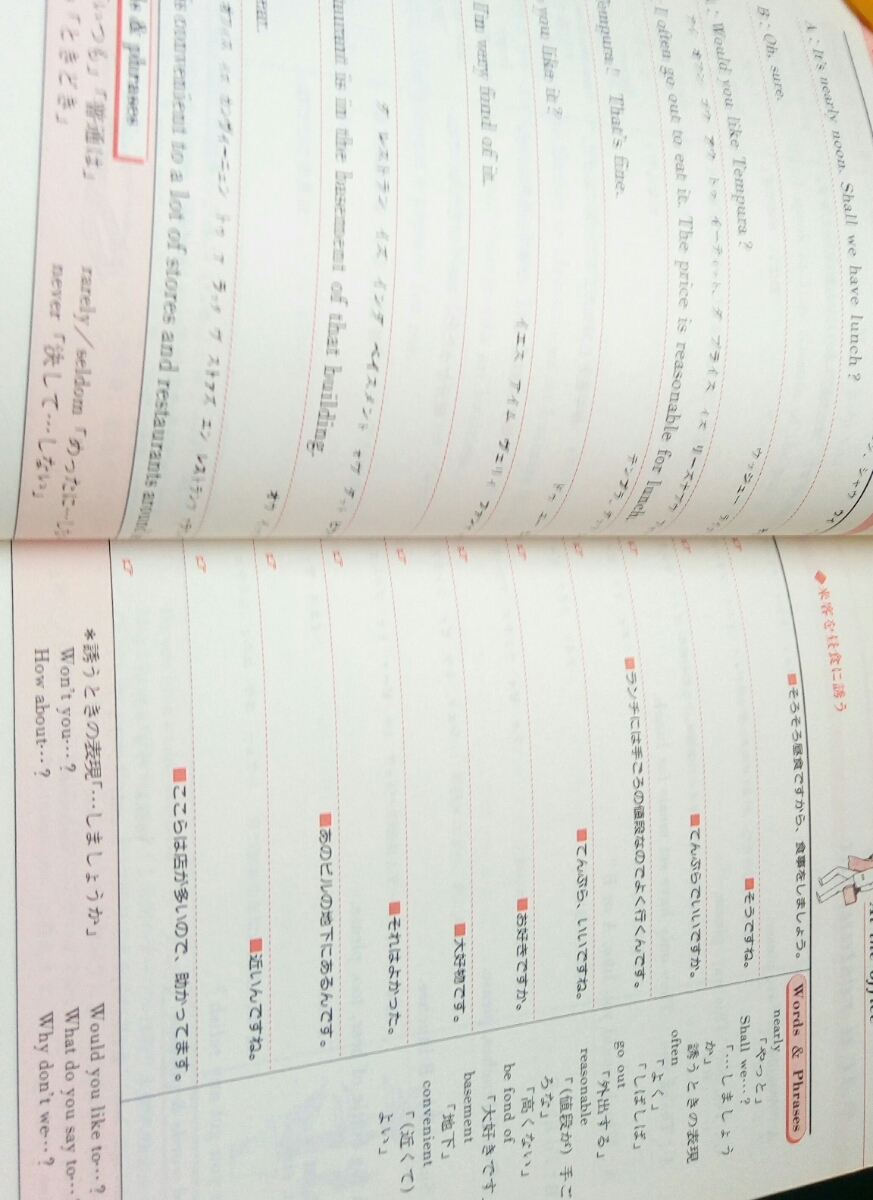 A : It's nearly noon. Shall we have lunch?
B : Oh, sure.
: Would you like Tempura?
I often go out to eat it. The price is reasonable for lunch.
Tempura! That's fine.
you like it?
I'm very fond of it.
ザ レストラン イズ インザ ベイスメント オヴ
is in the basement of that building.
convenient to a lot of stores and restaurants around
& phrases
「普通は」
「ときどき」
rarely/seldom「めったに…
never「決して…しない」
◆来客を昼食に誘う
■そろそろ昼食ですから、食事をしましょう。
■そうですね。
■てんぷらでいいですか。
■ランチには手ごろの値段なのでよく行くんです。
■てんぷら、いいですね。
■お好きですか。
■大好物です。
■それはよかった。
■あのビルの地下にあるんです。
■近いんですね。
■ここらは店が多いので、助かってます。
Words & Phrases
nearly
「やっと」
Shall we…?
「…しましょう
か」
誘うときの表現
often
「よく」
「しばしば」
go out
「外出する」
reasonable
「(値段が) 手ご
ろな」
「高くない」
be fond of
「大好きです
basement
「地下」
convenient
「(近くて)
よい」
*誘うときの表現「…しましょうか」
Won't you…?
How about…?
Would you like to…?
What do you say to…
Why don't we…?